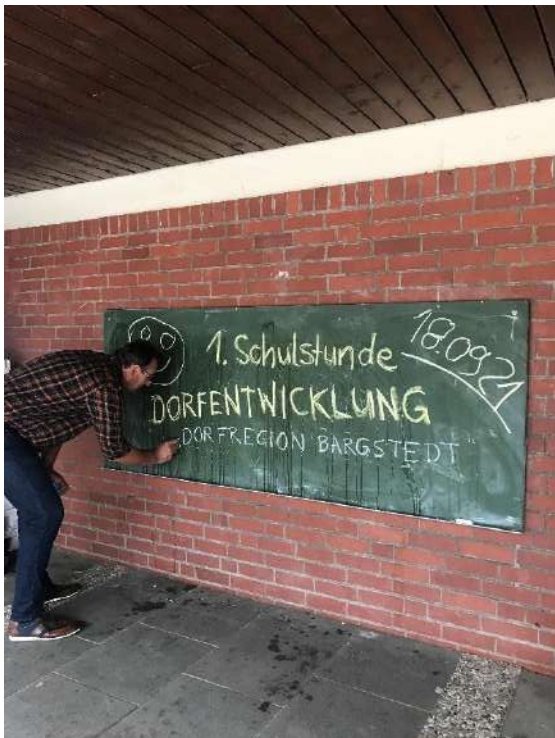 1. Schulstunde
18.09.21
DORFENTWICKLUNG
„DORFREGION BARGSTEDT"